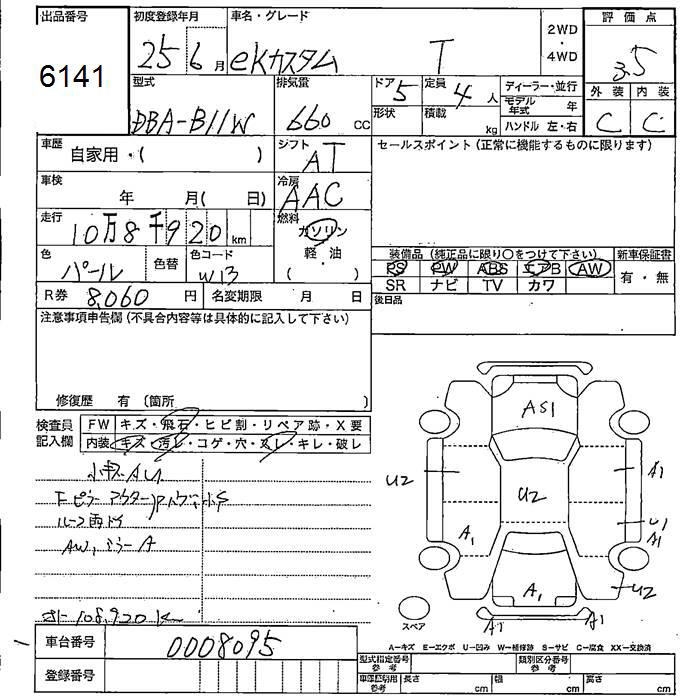 出品番号
6141
初度登録年月
25 6月
車名・グレード
eKカスタム T
2WD
・
4WD
評価点
3.5
外装 内装
C C
型式
DBA-B11W
排気量
660 CC
ドア 5
定員 4人
形状
積載 kg
ディーラー・並行
モデル年式 年
ハンドル 左・右
車歴
自家用・( )
シフト
AT
セールスポイント(正常に機能するものに限ります)
車検
年 月( 日)
冷房
AAC
走行
10万8千920 km
燃料
ガソリン
軽・油
・( )
色
パール
色替
色コード
W13
装備品(純正品に限り○をつけて下さい)
新車保証書
PS PW ABS エアB AW
有・無
SR ナビ TV カワ
R券 8,060 円
名変期限 月 日
後日品
注意事項申告欄(不具合内容等は具体的に記入して下さい)
修復歴 有(箇所 )
検査員
記入欄
FW キズ・飛石・ヒビ割・リペア跡・X要
内装 キズ・汚レ・コゲ・穴・スレ・キレ・破レ
AW,ミラーA
108,920K
AS1
U2
U2
A1
A1
U1
A1
A1
U2
A1
A1
スペア
A-キズ E-エクボ U-凹み W-補修跡 S-サビ C-腐食 XX-交換済
車台番号
0008095
登録番号
型式指定番号
参考
類別区分番号
参考
車庫証明用
参考
長さ cm
幅 cm
高さ cm